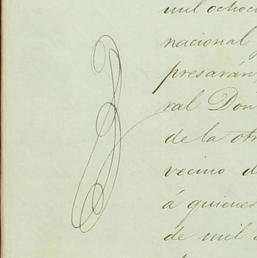 mil ochoci
nacional
presarán
ral Don
de la otr
vecino d
á quienes
de mil